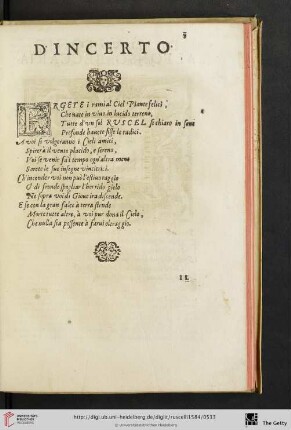 D'INCERTO.
ERGETE i rami al Ciel Piante felici,
Che nate in vivo, in lucido terreno,
Tutte d'un sol RVSCEL sì chiaro in seno
Profonde havete fisse le radici.
A voi si volgeranno i Cieli amici,
Spirerà il vento placido, e sereno,
Poi se venir fa'l tempo ogn'altra meno
Sarete le sue insegne vincitrici.
Ch'incender voi non può l'estivo raggio
O di fronde spogliar l'horrido gielo
Nè sopra voi di Giove ira discende.
E se con la gran falce à terra stende
Morte tutte altre, à voi pur dona il Cielo,
Che nulla sia possente à farvi oltraggio.
II
http://digi.ub.uni-heidelberg.de/diglit/ruscelli1584/0533
© Universitätsbibliothek Heidelberg
The Getty
UNIVERSITÄTS-
BIBLIOTHEK
HEIDELBERG